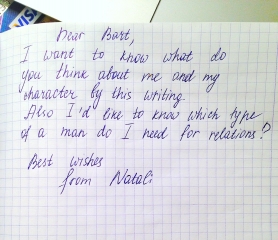 VISA
Dear Bart,
I want to know what do
you think about me and my
character by this writing.
Also I'd like to know which type
of a man do I need for relations?
Best wishes
from Natali